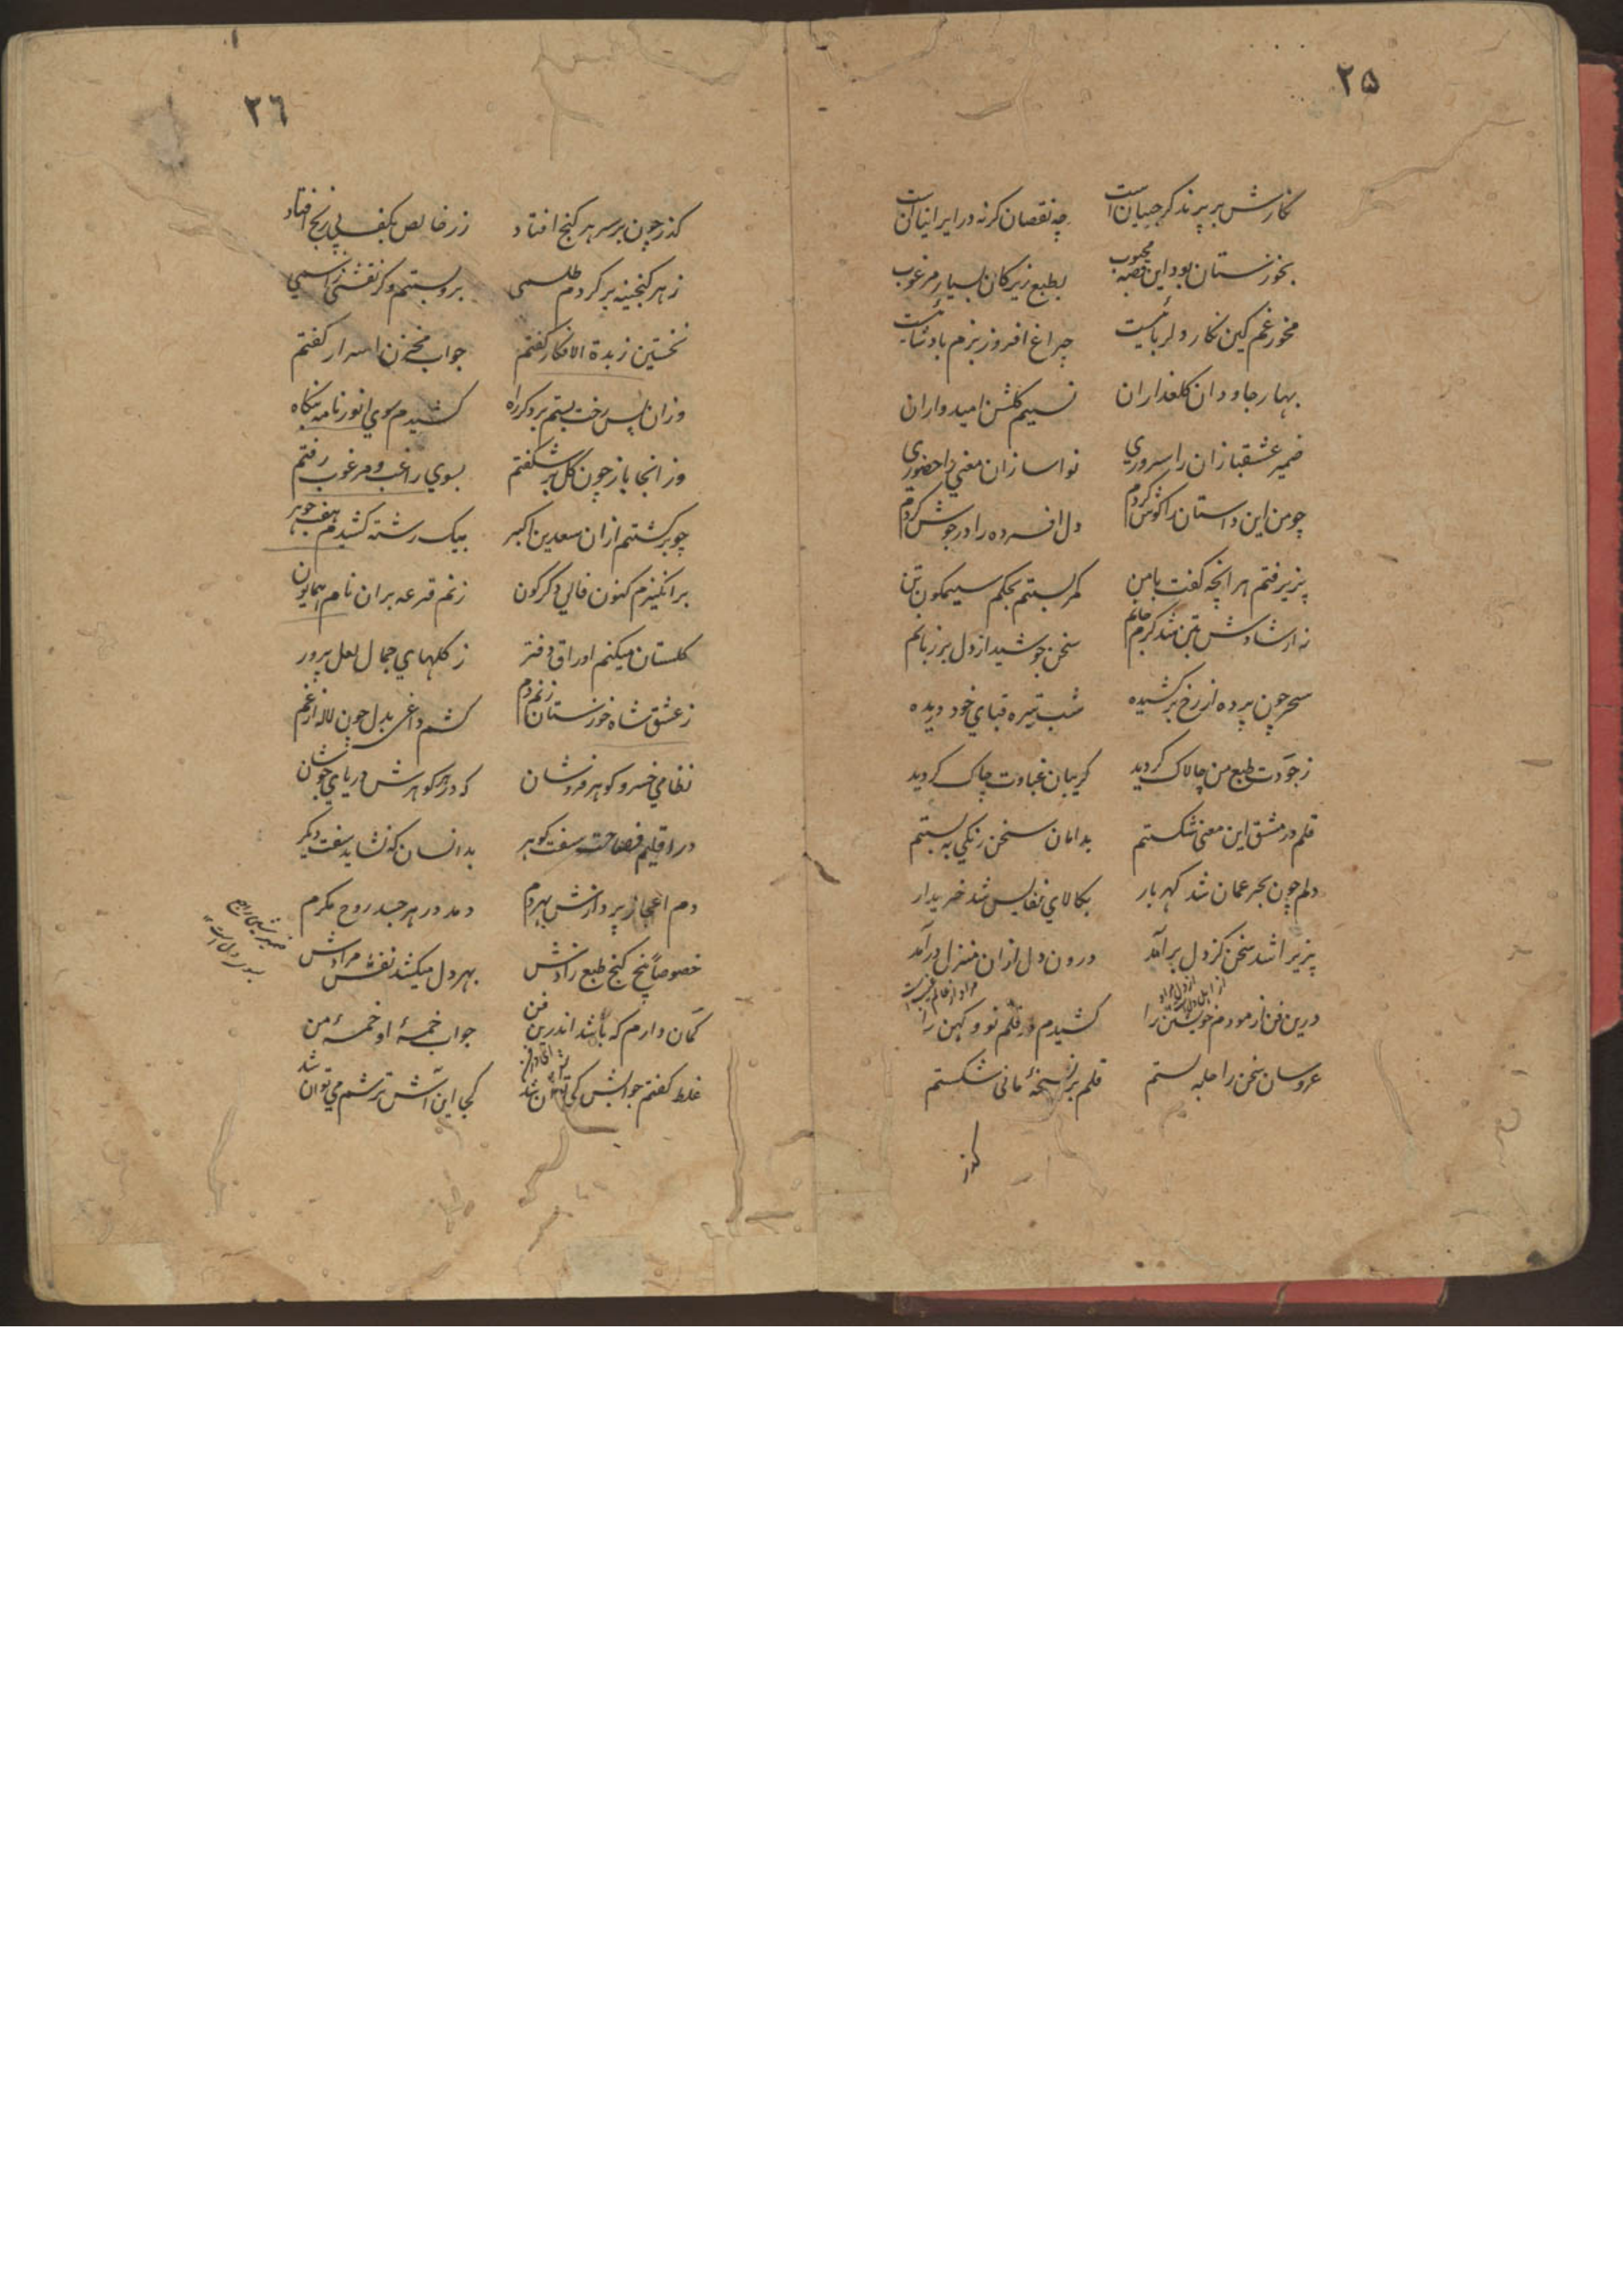 ۲۵
نکارش بر پرند کر جینیان است چه نقصان کرنه در ایرانیان است
بخوزستان بود این قصه محبوب بطبع زیرکان بسیار مرغوب
مخور غم کین نکار دلربائیست چراغ افروز بزم پادشائیست
بهار جاودان کلعذاران نسیم کلشن امیدواران
ضمیر عشقبازان را سروری نواسازان معنی را حضوری
چو من این داستان را کوش کردم دل افسرده را در جوش کردم
پزیرفتم هر انچه کفت با من کمر بستم بحکم سیمکون تن
ز ارشادش بتن شد کرم جانم سخن جوشید از دل بر زبانم
سحر چون پرده از رخ برکشیده شب تیره قبای خود دریده
ز جودت طبع من چالاک کردید کریبان غباوت چاک کردید
قلم در مشق این معنی شکستم بدامان سخن رنکی به بستم
دلم چون بحر عمان شد کهربار بکالای نفایس شد خریدار
پزیرا شد سخن کز دل برآمد درون دل ازان منزل درآمد
درین فن ازمودم خویشتن را کشیدم در قلم نو و کهن را
عروسان سخن را حله بستم قلم بر نسخهٔ مانی شکستم
کذر
۲٦
کذر چون بر سر هر کنج افتاد زر خالص بکف بی رنج افتاد
ز هر کنجینه بر کردم طلسمی برو بستم دکر نقشی ز اسمی
نخستین زبدة الافکار کفتم جواب مخزن اسرار کفتم
وزان پس رخت بستم بر دکر راه کشیدم سوی انورنامه بنکاه
وز انجا باز چون کل بر شکفتم بسوی راغب و مرغوب رفتم
چو برکشتم ازان سعدین اکبر بیک رشته کشیدم هفت جوهر
برانکیزم کنون فالی دکرکون زنم قرعه بران نام همایون
کلستان میکنم اوراق دفتر ز کلهای جمال لعل پرور
ز عشق شاه خوزستان زنم دم کشم داغی بدل چون لاله از غم
نظامی خسرو کوهر فروشان که در کوهرش دریای جوشان
در اقلیم فصاحت سفت کوهر بدانسان که نشاید سفت دیکر
دم اعجاز پردازش بهر دم دمد در هر جسد روح مکرم
خصوصاً پنج کنج طبع رادش بهر دل میکشد نقش مرادش
کمان دارم که باشد اندرین فن جواب خمسهٔ او خمسهٔ من
غلط کفتم جوابش کی توان شد کجا این آتش ترشم می توان شد